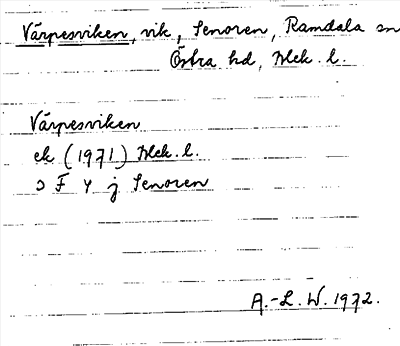 Värpesviken, vik, Senoren, Ramdala sn
Östra hd, Blek. l.
Värpesviken
ek (1971) Blek. l.
ɔ F Y j Senoren
A.-L. W. 1972.